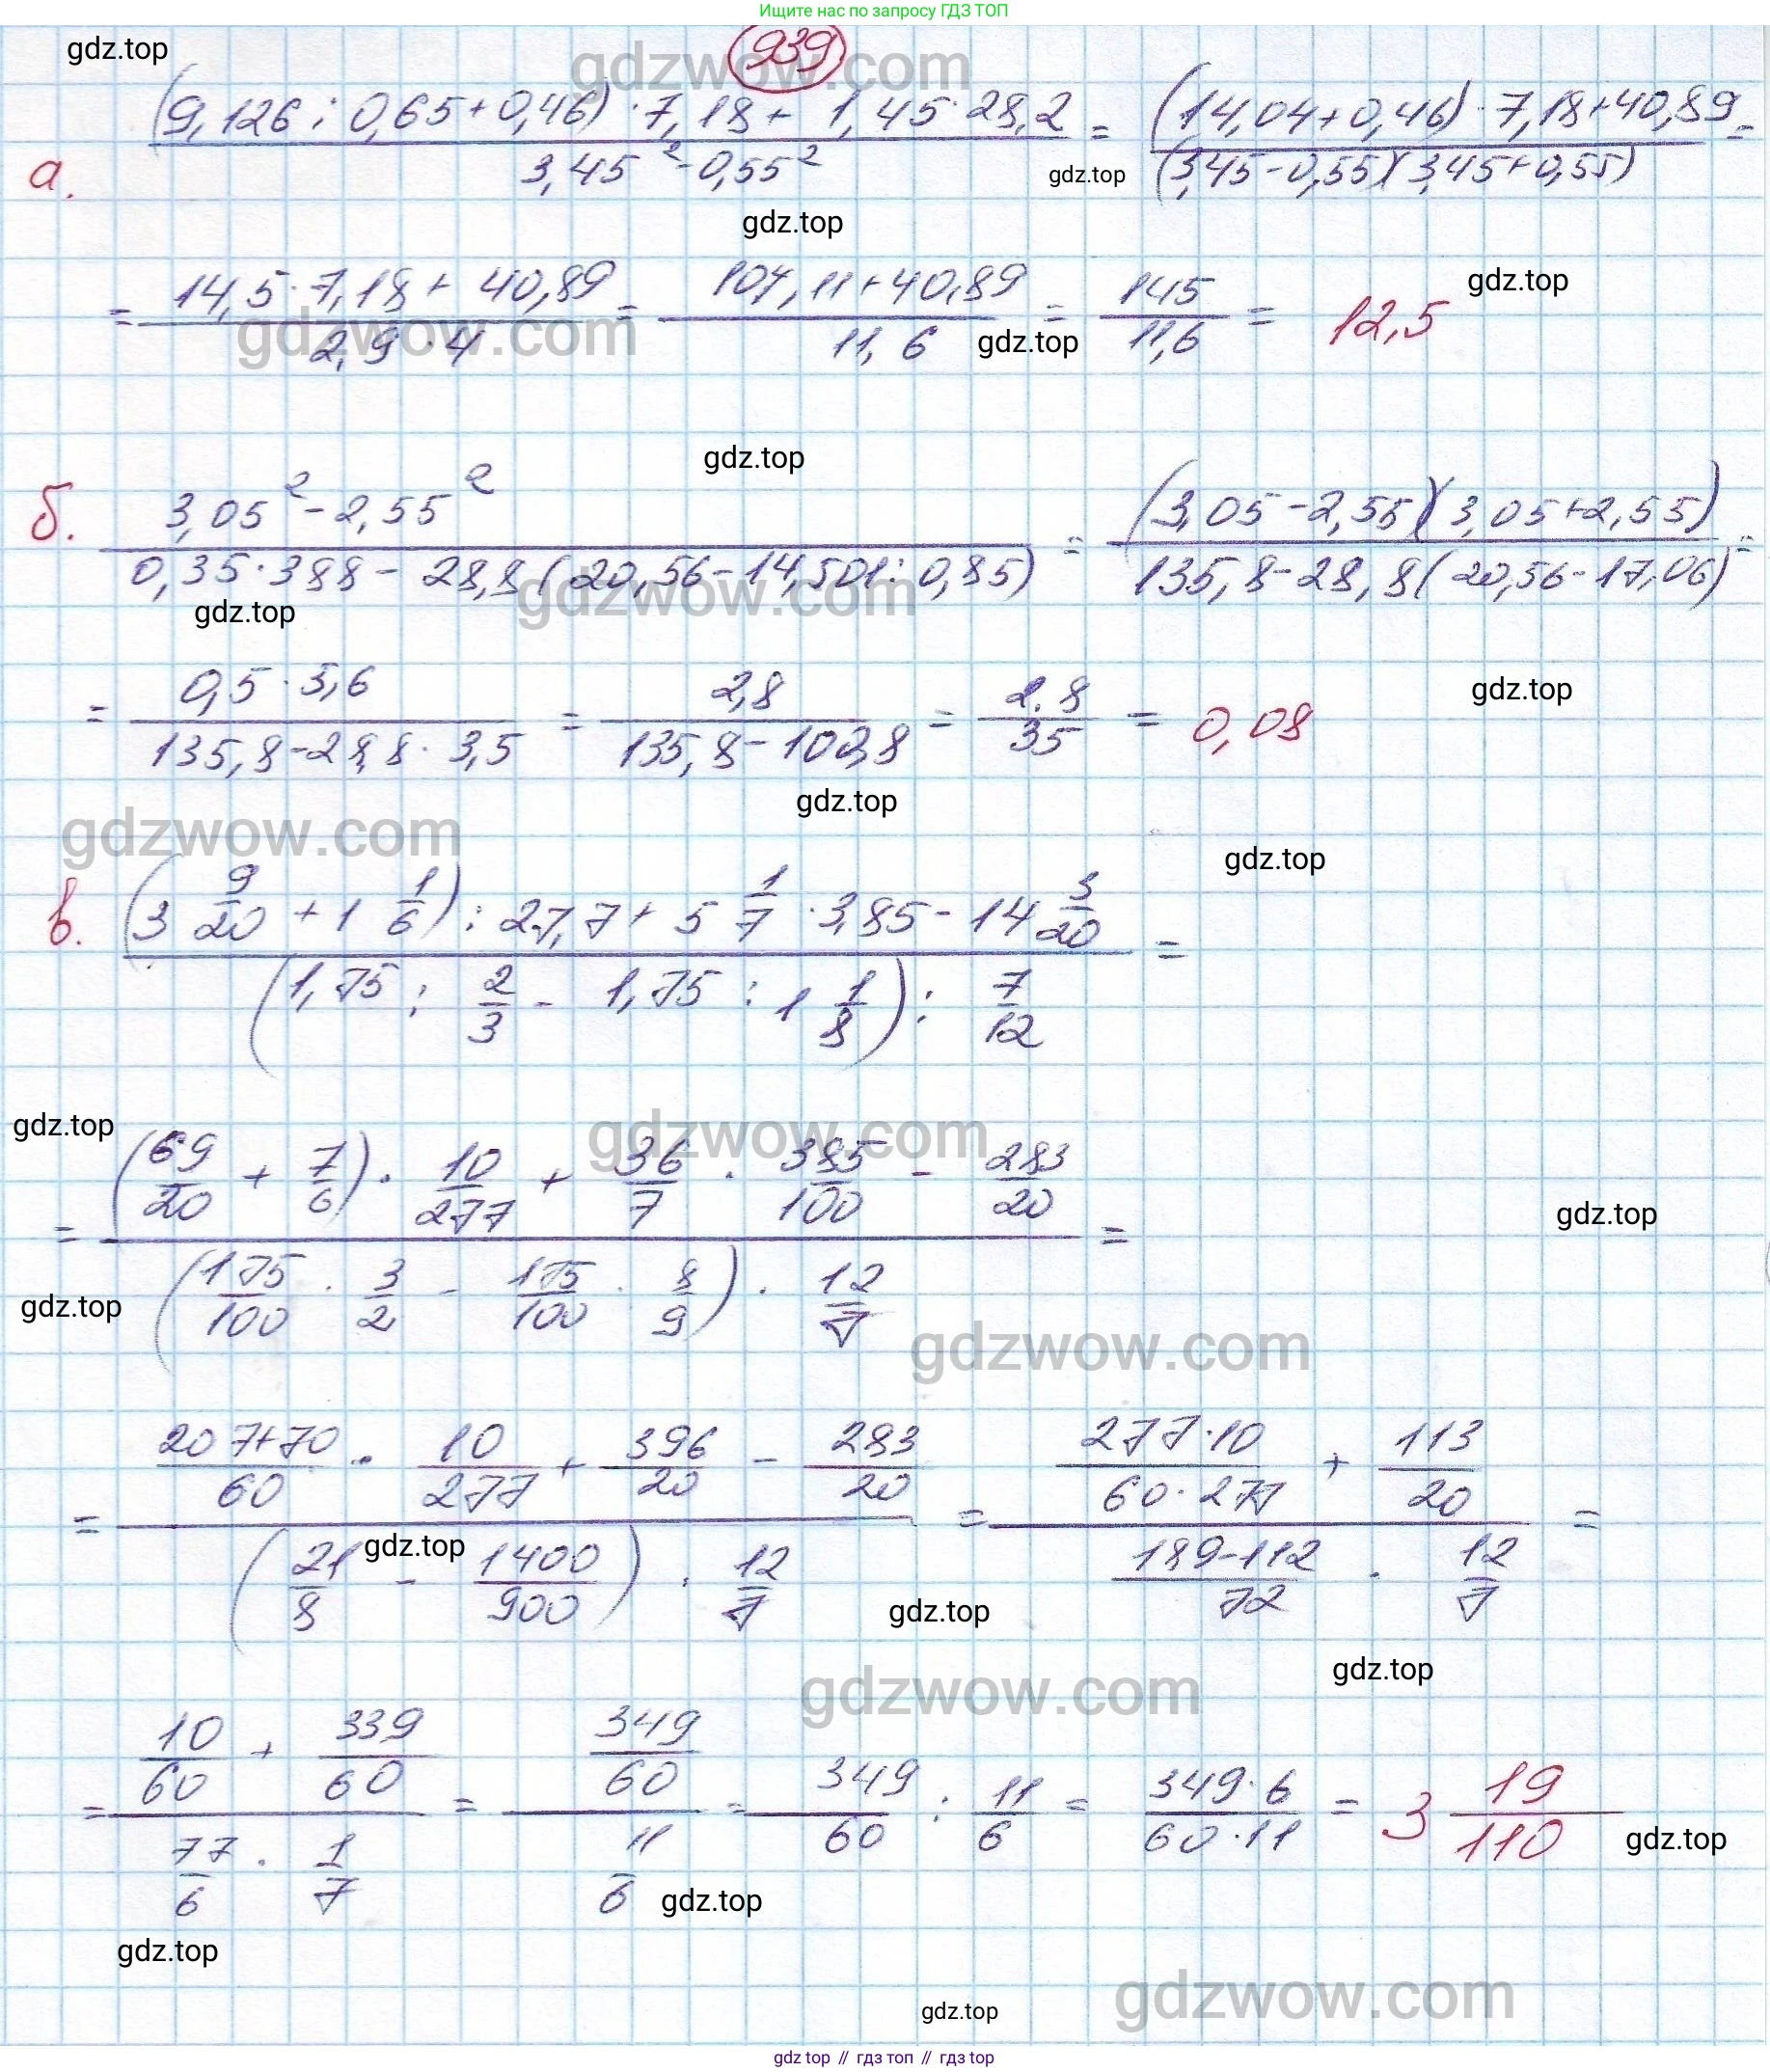 Ищите нас по запросу ГДЗ ТОП
939
gdz.top
gdzwow.com
а. \frac{(9,126 : 0,65 + 0,46) · 7,18 + 1,45 · 28,2}{3,45² - 0,55²} = \frac{(14,04 + 0,46) · 7,18 + 40,89}{(3,45 - 0,55)(3,45 + 0,55)} =
gdz.top
gdz.top
= \frac{14,5 · 7,18 + 40,89}{2,9 · 4} = \frac{104,11 + 40,89}{11,6} = \frac{145}{11,6} = 12,5
gdz.top
gdzwow.com
gdz.top
gdz.top
б. \frac{3,05² - 2,55²}{0,35 · 388 - 28,8 (20,56 - 14,501 : 0,85)} = \frac{(3,05 - 2,55)(3,05 + 2,55)}{135,8 - 28,8 (20,56 - 17,06)} =
gdzwow.com
gdz.top
= \frac{0,5 · 5,6}{135,8 - 28,8 · 3,5} = \frac{2,8}{135,8 - 100,8} = \frac{2,8}{35} = 0,08
gdz.top
gdz.top
gdzwow.com
gdz.top
в. \frac{(3 \frac{9}{20} + 1 \frac{1}{6}) : 27,7 + 5 \frac{1}{7} · 3,85 - 14 \frac{3}{20}}{(1,75 : \frac{2}{3} - 1,75 : 1 \frac{1}{8}) : \frac{7}{12}} =
gdz.top
gdzwow.com
= \frac{(\frac{69}{20} + \frac{7}{6}) · \frac{10}{277} + \frac{36}{7} · \frac{385}{100} - \frac{283}{20}}{(\frac{175}{100} · \frac{3}{2} - \frac{175}{100} · \frac{8}{9}) · \frac{12}{7}} =
gdz.top
gdz.top
gdzwow.com
= \frac{\frac{207+70}{60} · \frac{10}{277} + \frac{396}{20} - \frac{283}{20}}{(\frac{21}{8} - \frac{1400}{900}) · \frac{12}{7}} = \frac{\frac{277·10}{60·277} + \frac{113}{20}}{\frac{189-112}{72} · \frac{12}{7}} =
gdz.top
gdz.top
gdz.top
gdzwow.com
= \frac{\frac{10}{60} + \frac{339}{60}}{\frac{77}{6} · \frac{1}{7}} = \frac{\frac{349}{60}}{\frac{11}{6}} = \frac{349}{60} : \frac{11}{6} = \frac{349·6}{60·11} = 3 \frac{19}{110}
gdz.top
gdz.top
gdz.top
gdzwow.com
gdz.top
gdz.top // гдз топ // гдз.top